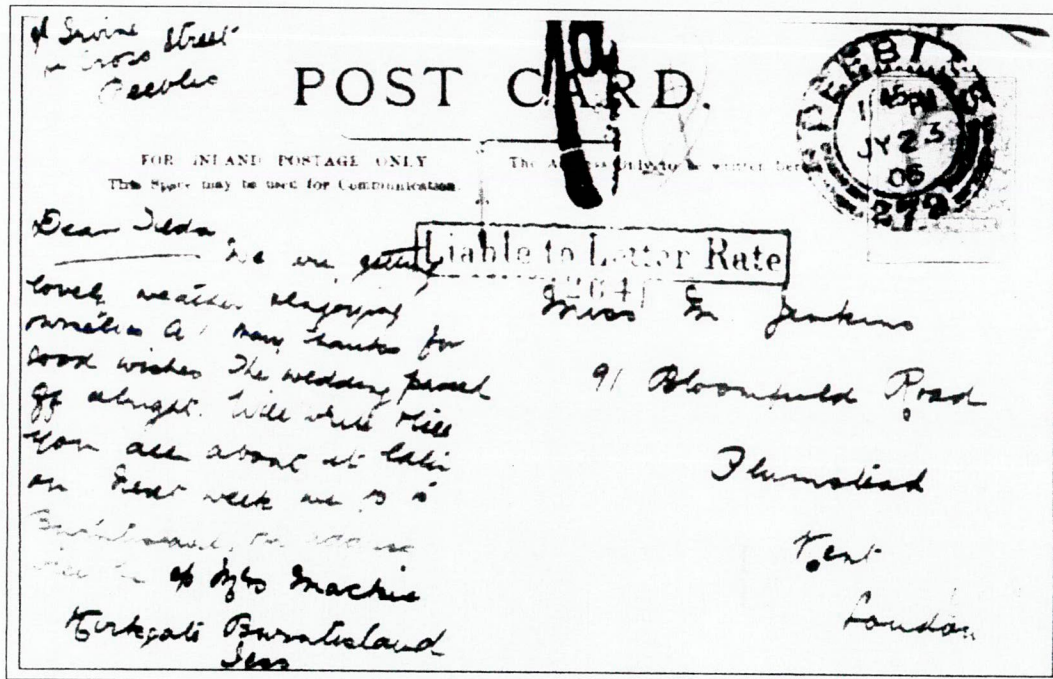 c/o Irvine
Cross Street
Peebles
POST CARD.
FOR INLAND POSTAGE ONLY
This Space may be used for Communication.
The
PEEBLES
1 45PM
JY 23
06
272
Liable to Letter Rate
264
Dear Tilda
We are getting
lovely weather & enjoying
ourselves A1 many thanks for
good wishes The wedding passed
off alright. Will write & tell
you all about it later
on Next week we go to
Burntisland,
c/o Mrs Mackie
Kirkgate Burntisland
Jess
Miss M Jenkins
91 Bloomfield Road
Plumstead
Kent
London